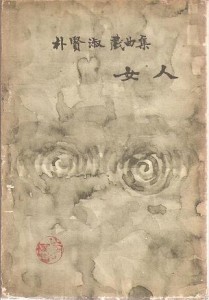 朴賢淑 戱曲集
女人